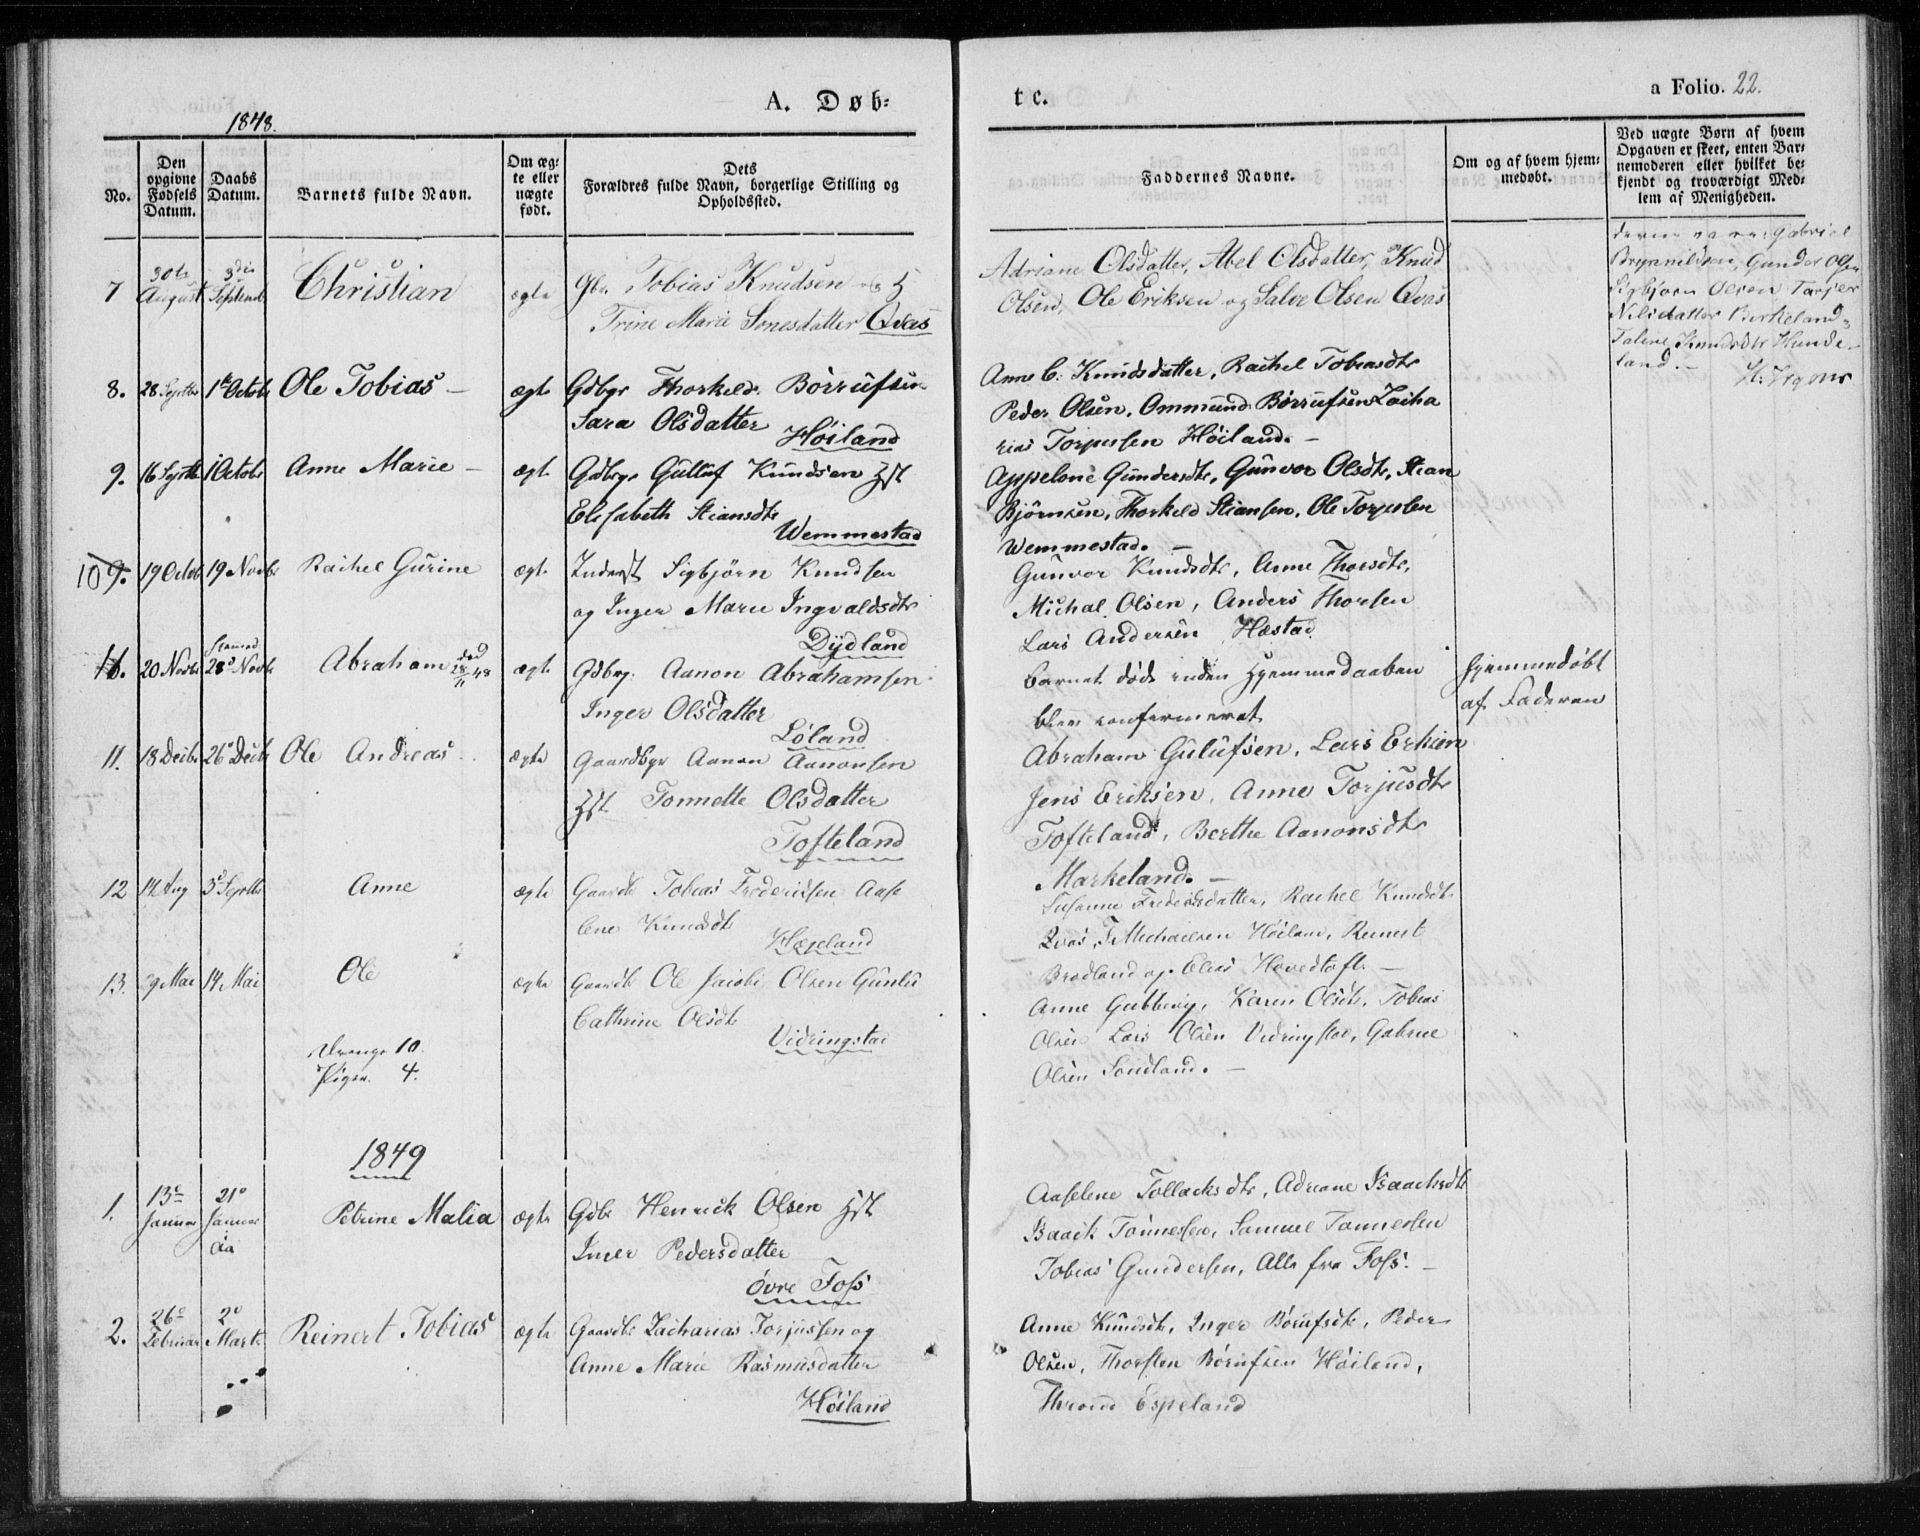 A. Døb=
t c.
a Folio. 22.
1848.
No.
Den opgivne Fødsels Datum.
Daabs Datum.
Barnets fulde Navn.
Om ægte eller uægte født.
Dets Forældres fulde Navn, borgerlige Stilling og Opholdssted.
Faddernes Navne.
Om og af hvem hjem= medøbt.
Ved uægte Børn af hvem Opgaven er skeet, enten Bar= nemoderen eller hvilket be= kjendt og troværdigt Med= lem af Menigheden.
7 30te August 3die Septembr Christian ægte Gbr Tobias Knudsen og H
Trine Marie Sonesdatter Qvas
Adriane Olsdatter, Abel Olsdatter, Knud
Olsen, Ole Eriksen og Salve Olsen Qvas
Gabriel
Gunder Olsen
Sigbjørn Olsen Tarjer
Nilsdatter Birkeland
Talene Knudsdtr Hunde-
land. -
8. 28 Septbr 1te Octobr Ole Tobias - ægte Gdbgr Thorkeld Børrufsen
Sara Olsdatter
Høiland
Anne C. Knudsdatter, Rachel Tobiasdtr
Peder Olsen, Ommund Børrufsen Zacha
rias Torjussen Høiland. -
9. 16 Septbr 1 Octobr Anne Marie - ægte Gdbgr Gulluf Knudsen Hst
Elisabeth Stiansdtr
Wemmestad
Appelone Gundersdtr, Gunvor Olsdtr, Stian
Bjørnsen, Thorkeld Stiansen, Ole Torjussen
Wemmestad. -
10 9. 19 Octob 19 Novbr Rachel Gurine ægte Inderst Sigbjørn Knudsen
og Inger Marie Ingvaldsdtr
Dydland
Gunvor Knudsdtr, Anne Thorsdtr,
Michal Olsen, Anders Thorsen
Lars Andersen Hæstad
20 Novbr 28de Novbr Abraham død 28/11 48 ægte Gdbrg. Aanon Abrahamsen
Inger Olsdatter
Løland
Barnet døde inden Hjemmedaaben
blev confermeret
Hjemmedøbt
af Faderen
11. 18 Decbr 26 Decbr Ole Andreas ægte Gaardbgr Aanon Aanonsen
Hst Tonnette Olsdatter
Tofteland
Abraham Gulufsen, Lars Eriksen
Jens Eriksen, Anne Torjusdtr
Tofteland, Berthe Aanonsdtr
Markeland. -
12 14 Aug 3 Septbr Anne ægte Gaardb Tobias Frederiksen Aase
lene Knudsdtr
Hægeland
Susanne Frederiksdatter, Rachel Knudsdtr
Qvas, T Michaelsen Høiland, Reinert
Brodland og Elias Hovedtoft. -
13. 29 Mar 14 Mai Ole ægte Gaardb Ole Jacob Olsen Gunlu
Cathrine Olsdtr
Vidringstad
Anne Gubberg, Karen Olsdtr, Tobias
Olsen Lars Olsen Vidringstad, Gabriel
Olsen Sondland. -
Drenge 10.
Piger. 4.
1849
1. 13de Januar 21de Januar Aa Petrine Malia ægte Gdbr Henrick Olsen Hst
Inger Pedersdatter
øvre Foss
Aaselene Tollacksdtr, Adriane Isaachsdtr
Isaack Tønnessen, Samuel Tønnessen
Tobias Gundersen, Alle fra Foss. -
2. 26de Februar 2de Marts Reinert Tobias ægte Gaardbr Zacharias Torjussen og
Anne Marie Rasmusdatter
Høiland
Anne Knudsdtr, Inger Børufsdtr, Peder
Olsen, Thorsten Børufsen Høiland,
Thrond Espeland